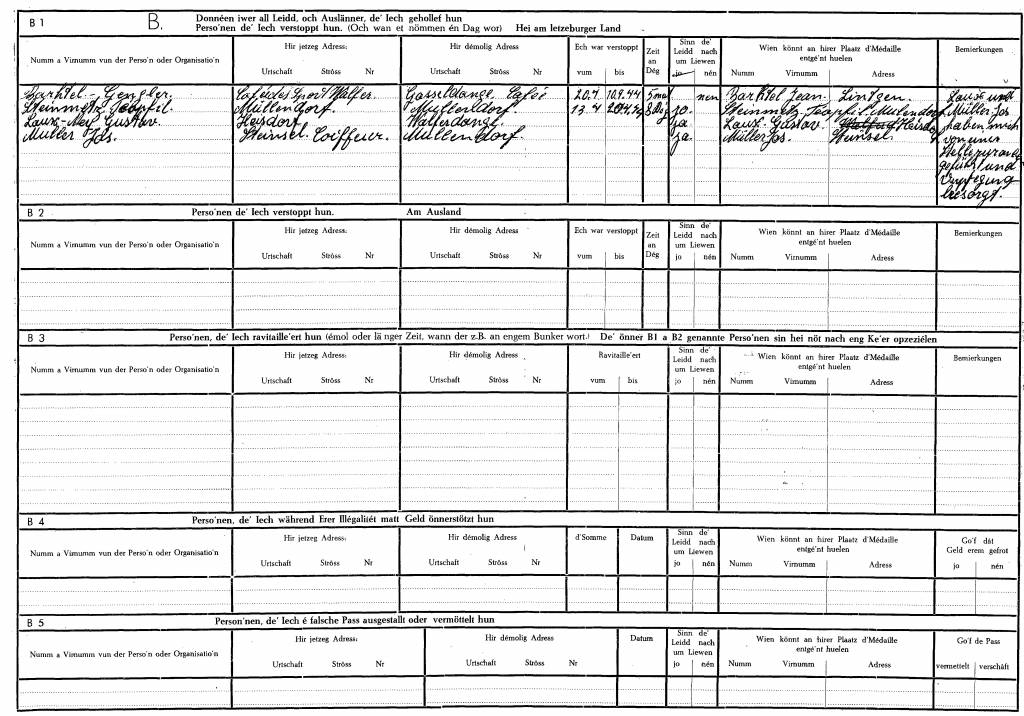 B 1 B. Donnéen iwer all Leidd, och Auslänner, de' Iech gehollef hun
Perso'nen de' Iech verstoppt hun. (Och wan et nömmen én Dag wor) Hei am letzeburger Land
Numm a Virnumm vun der Perso'n oder Organisatio'n
Hir jetzeg Adress:
Urtschaft Ströss Nr
Hir démolig Adress
Urtschaft Ströss Nr
Ech war verstoppt
vum bis
Zeit an Dég
Sinn de' Leidd nach um Liewen
jo nén
Wien könnt an hirer Plaatz d'Médaille entgé'nt huelen
Numm Virnumm Adress
Bemierkungen
Barthel - Gengler. Walfer. Gosseldange, Café 20.7. 10.9.44 nen Barthel Jean. Lintgen.
Steinmetz Müllendorf. Müllendorf. 13.4 8 Dg jo. Steinmetz Mülendorf
Gustav. Heisdorf ja. Gustav. Heisdorf
Müller Jos. Steinsel. Coiffeur. Müllendorf. ja. Müller Jos. Steinsel.
und
Müller Jos
haben mich
von einer
Stelle zur
geführt und
Verpflegung
besorgt.
B 2 Perso'nen de' Iech verstoppt hun. Am Ausland
Numm a Virnumm vun der Perso'n oder Organisatio'n
Hir jetzeg Adress:
Urtschaft Ströss Nr
Hir démolig Adress
Urtschaft Ströss Nr
Ech war verstoppt
vum bis
Zeit an Dég
Sinn de' Leidd nach um Liewen
jo nén
Wien könnt an hirer Plaatz d'Médaille entgé'nt huelen
Numm Virnumm Adress
Bemierkungen
B 3 Perso'nen, de' Iech ravitaille'ert hun (émol oder länger Zeit, wann der z.B. an engem Bunker wort.) De' önner B1 a B2 genannte Perso'nen sin hei nöt nach eng Ke'er opzeziélen
Numm a Virnumm vun der Perso'n oder Organisatio'n
Hir jetzeg Adress:
Urtschaft Ströss Nr
Hir démolig Adress
Urtschaft Ströss Nr
Ravitaille'ert
vum bis
Sinn de' Leidd nach um Liewen
jo nén
Wien könnt an hirer Plaatz d'Médaille entgé'nt huelen
Numm Virnumm Adress
Bemierkungen
B 4 Perso'nen, de' Iech während Erer Illégalitét matt Geld önnerstötzt hun
Numm a Virnumm vun der Perso'n oder Organisatio'n
Hir jetzeg Adress:
Urtschaft Ströss Nr
Hir démolig Adress
Urtschaft Ströss Nr
d'Somme
Datum
Sinn de' Leidd nach um Liewen
jo nén
Wien könnt an hirer Plaatz d'Médaille entgé'nt huelen
Numm Virnumm Adress
Go'f dât Geld erem gefrot
jo nén
B 5 Perso'nen, de' Iech é falsche Pass ausgestallt oder vermöttelt hun
Numm a Virnumm vun der Perso'n oder Organisatio'n
Hir jetzeg Adress:
Urtschaft Ströss Nr
Hir démolig Adress
Urtschaft Ströss Nr
Datum
Sinn de' Leidd nach um Liewen
jo nén
Wien könnt an hirer Plaatz d'Médaille entgé'nt huelen
Numm Virnumm Adress
Go'f de Pass
vermettelt verschâft